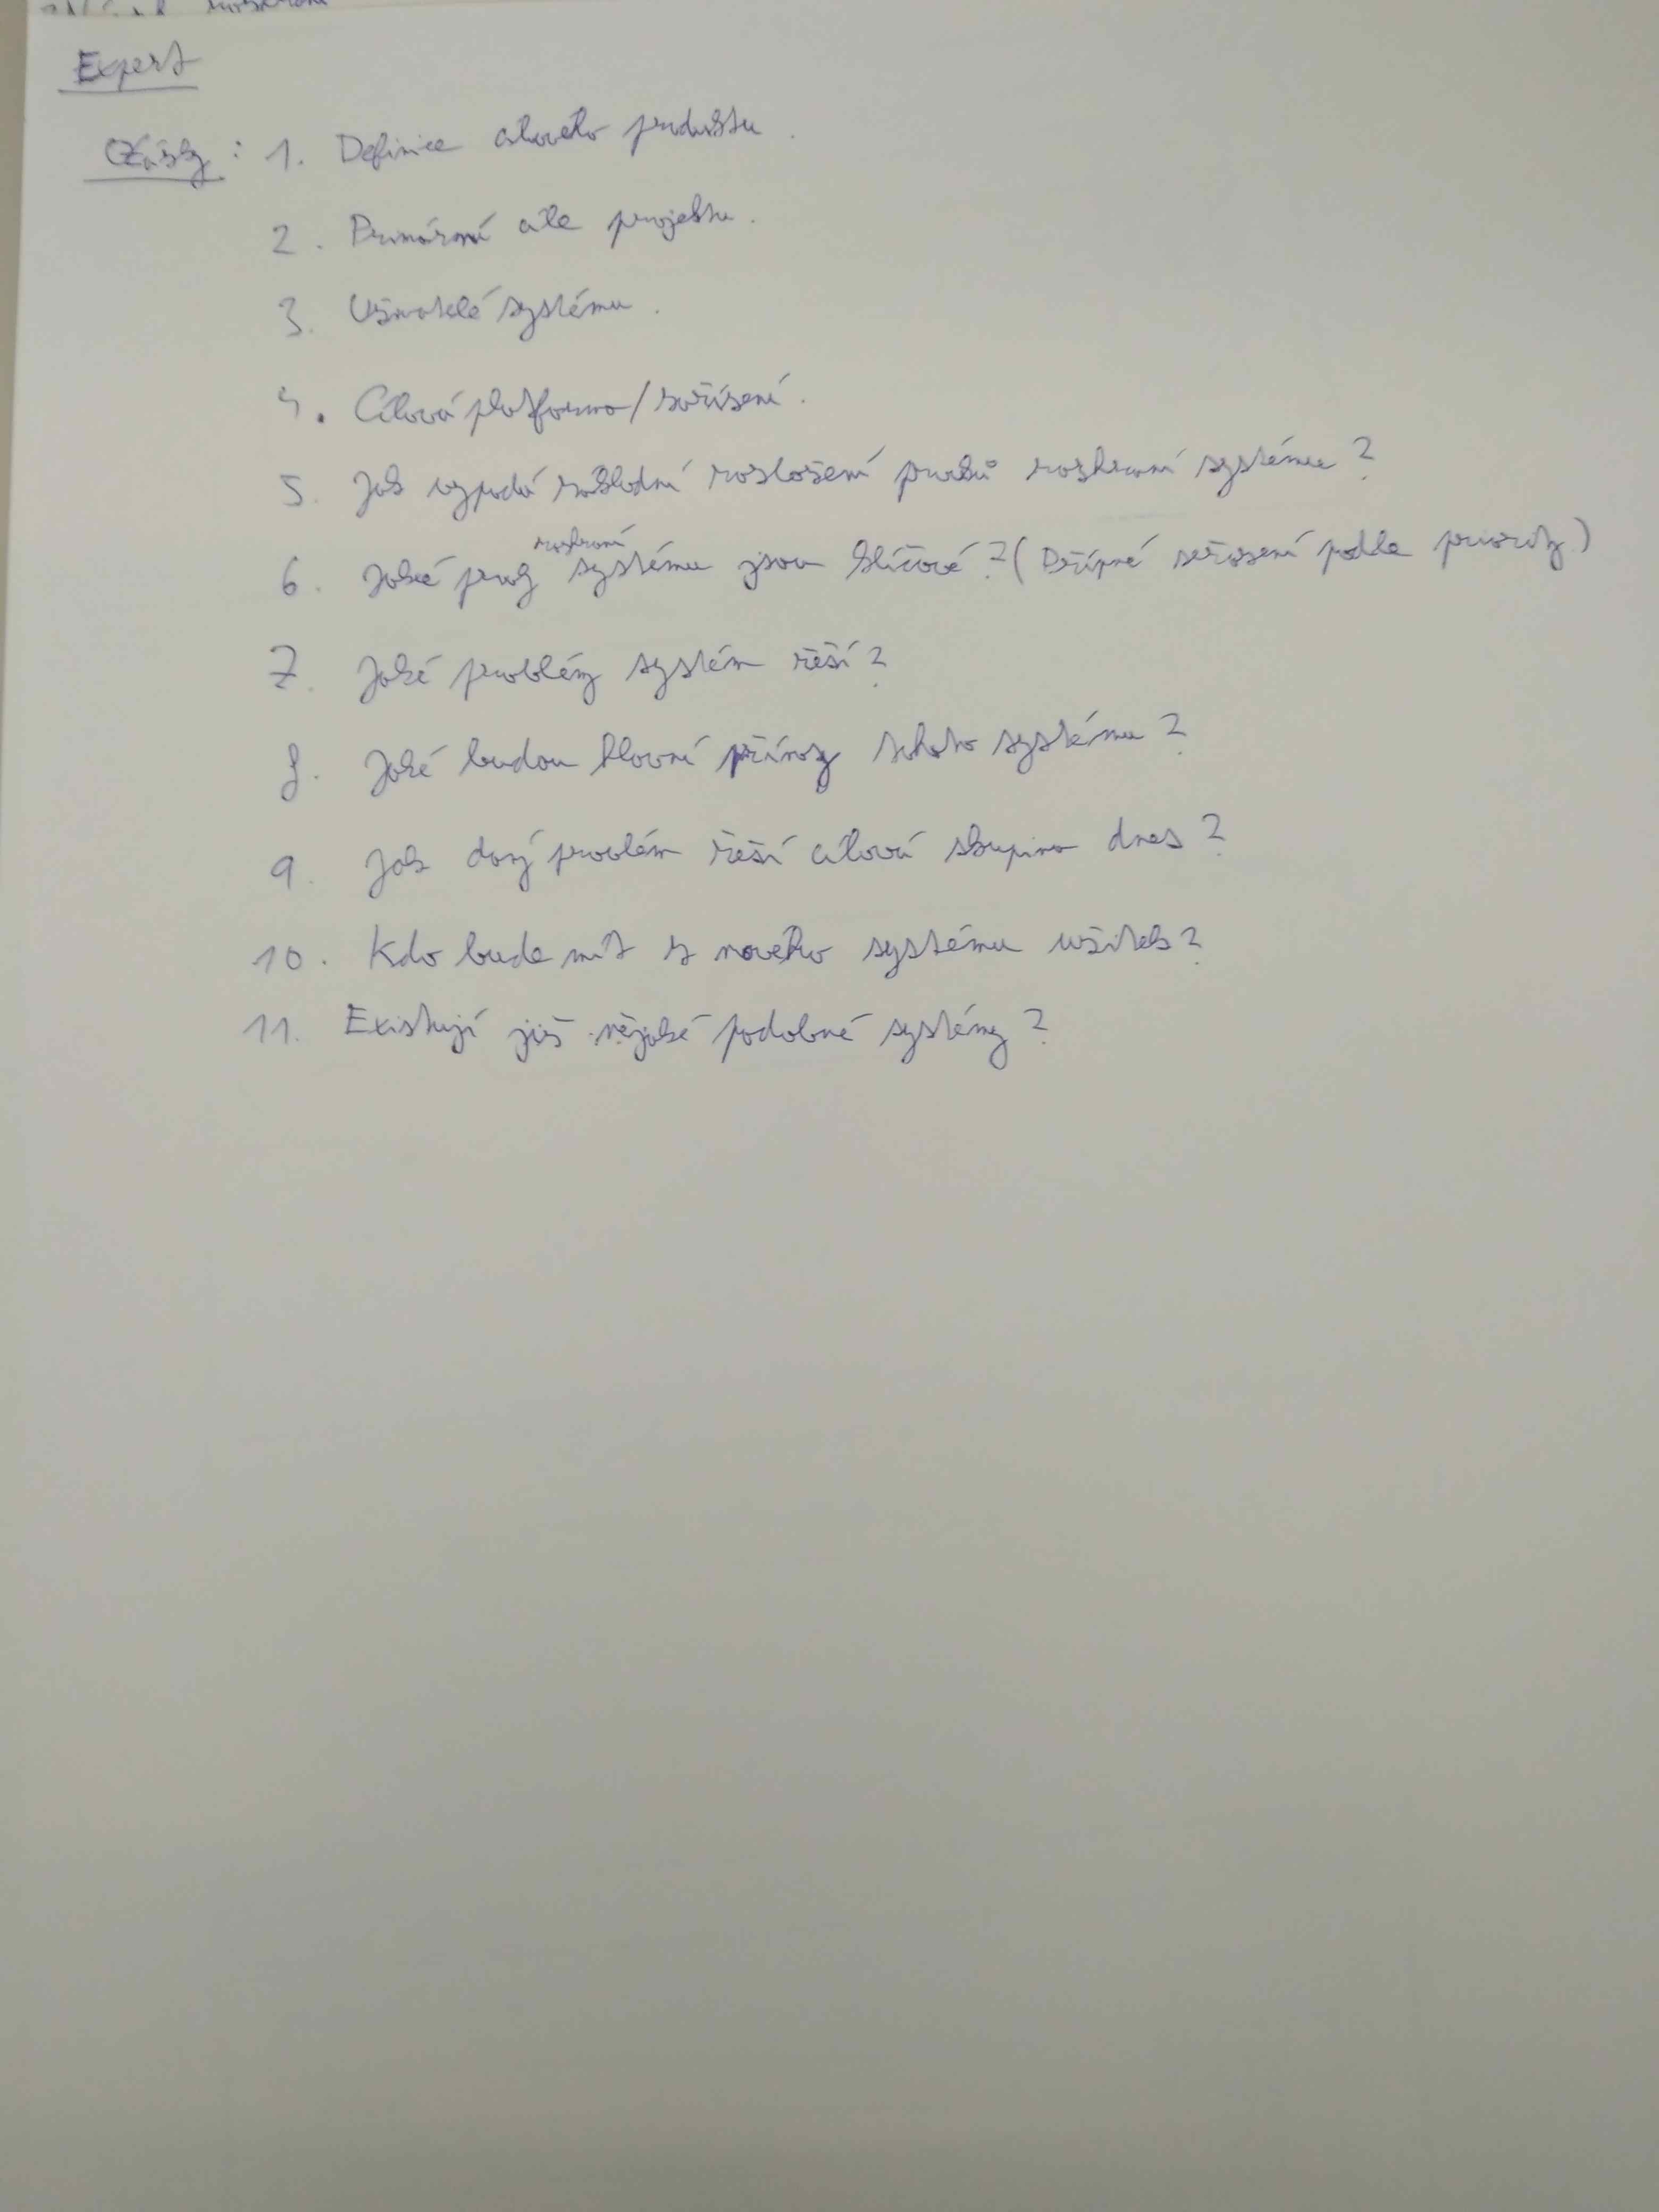 Expert
Otázky: 1. Definice cílového produktu.
2. Primární cíle projektu.
3. Uživatelé systému.
4. Cílová platforma/zařízení.
5. Jak vypadá základní rozložení prvků rozhraní systému?
rozhraní
6. Jaké prvky systému jsou klíčové? (Případné seřazení podle priority)
7. Jaké problémy systém řeší?
8. Jaké budou hlavní přínosy tohoto systému?
9. Jak daný problém řeší cílová skupina dnes?
10. Kdo bude mít z nového systému užitek?
11. Existují již nějaké podobné systémy?